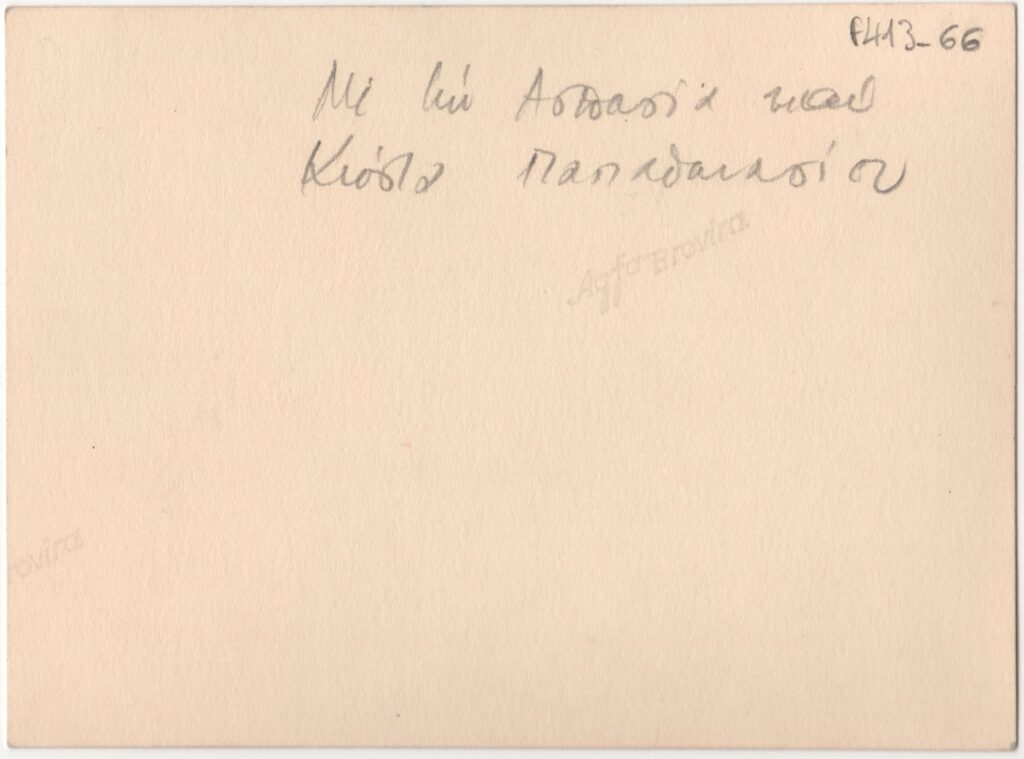 F413-66
Με την Ασπασία και
Κώστα Παπαθανασίου
Agfa Brovira
rovira